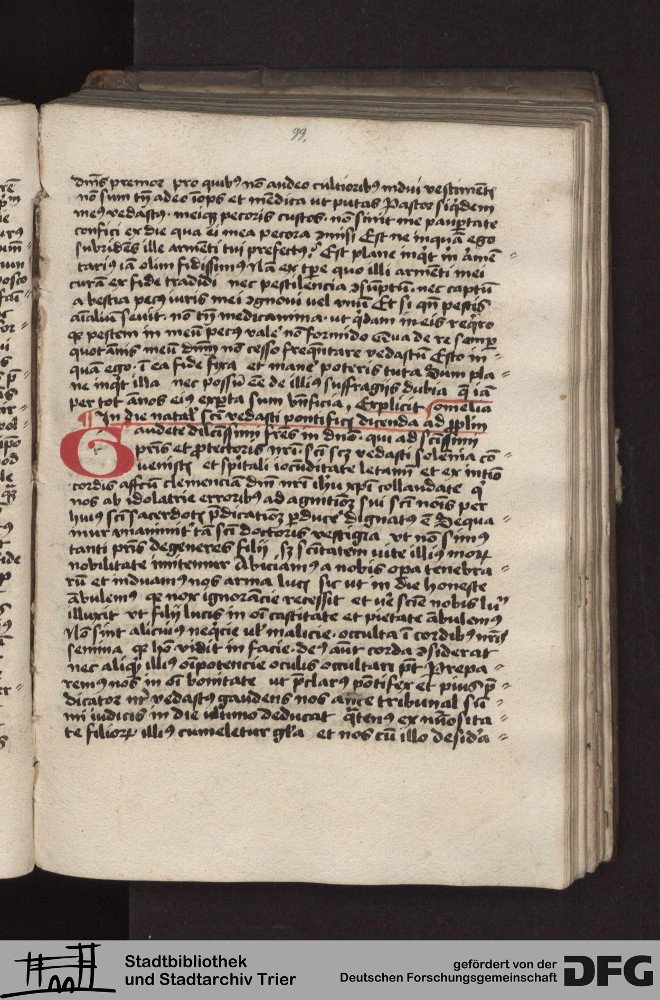 99.
dn̄s premor pro quibꝰ nō audeo cultioribꝰ indui vestimētꝭ
nō sum tn̄ adeo iops et mēdica ut putas Pastor siq̄dem
meꝰ vedastꝰ meiqꝫ pecoris custos. nō sinit me paupertate
confici ex die qua ei mea pecora ɔmisi Est ne inquā ego
subridēs ille armēti tui prefectꝰ? Est plane inqt in armē
tariꝰ iā olim fidissimꝰ Nā ex tp̄e quo illi armēti mei
curā ex fide tradidi nec pestilencia ɔsūptū. nec captū
a bestia pecꝰ iuris mei ɔgnoui uel vnū Et si qn̄ pestis
nō tn̄ medicamina. ut q̄dam in eis reqro
pestem in meū pecꝰ vale nō formido de re semꝑ
quotānis meū dn̄m nō cesso freq̄ntare vedastū Esto in
quā ego. ī ea fide fixa et mane poteris tuta Sum pla
ne inqt illa nec possū eē de illiꝰ suffragijs dubia q̄ iā
per tot ānos eiꝰ exꝑta sum bn̄ficia, Explicit omelia
In die natal scī vedasti pontificꝭ dicenda ad pplm
Gaudete dilc̄issimi fr̄es in dn̄o. qui ad sc̄issimi
pr̄is et ꝓtectoris nr̄i scī scꝫ vedasti solēnia cō
uenistꝭ et spitali iocūditate letamī et ex intīo
cordis affcū clemenciā dn̄i nr̄i ih̄u xp̄i collaudate q̄
nos ab idolatrie erroribꝰ ad agnitiōꝫ sui scī nōis per
huiꝰ scī sacerdotꝭ p̄dicatiōꝫ ꝑducē dignatꝰ ē Sequa
mur vnanimit tā scī doctoris vestigia vt nō simꝰ
tanti pr̄is degeneres filij sꝫ sc̄itatem uite illiꝰ moꝝ
nobilitate imitemur Abiciamꝰ a nobis oꝑa tenebra
rū et induamꝰ nos arma lucꝭ sic ut in die honeste
ābulemꝰ qꝛ nox ignorācie recessit et ue sciē nobis lux
illuxit vt filij lucis in oī castitate et pietate ābulemꝰ
Nō sint alicuiꝰ neq̄cie ul malicie. occulta ī cordibꝰ nr̄is
semina qꝛ hō vidit in facie. deꝰ aut corda ɔsiderat
nec aliqd illiꝰ oīpotencie oculis occultari pt Prepa
remꝰ nos in oī bonitate ut p̄clarꝰ pōtifex et piꝰ p̄
dicator nr̄ vedastꝰ gaudens nos ante tribunal sū
mi iudicis in die ultimo deducat q̄tenꝰ ex nūosita
te filioꝝ illiꝰ cumuletur gl̄a et nos cū illo desidā
Stadtbibliothek
und Stadtarchiv Trier
gefördert von der
Deutschen Forschungsgemeinschaft
DFG